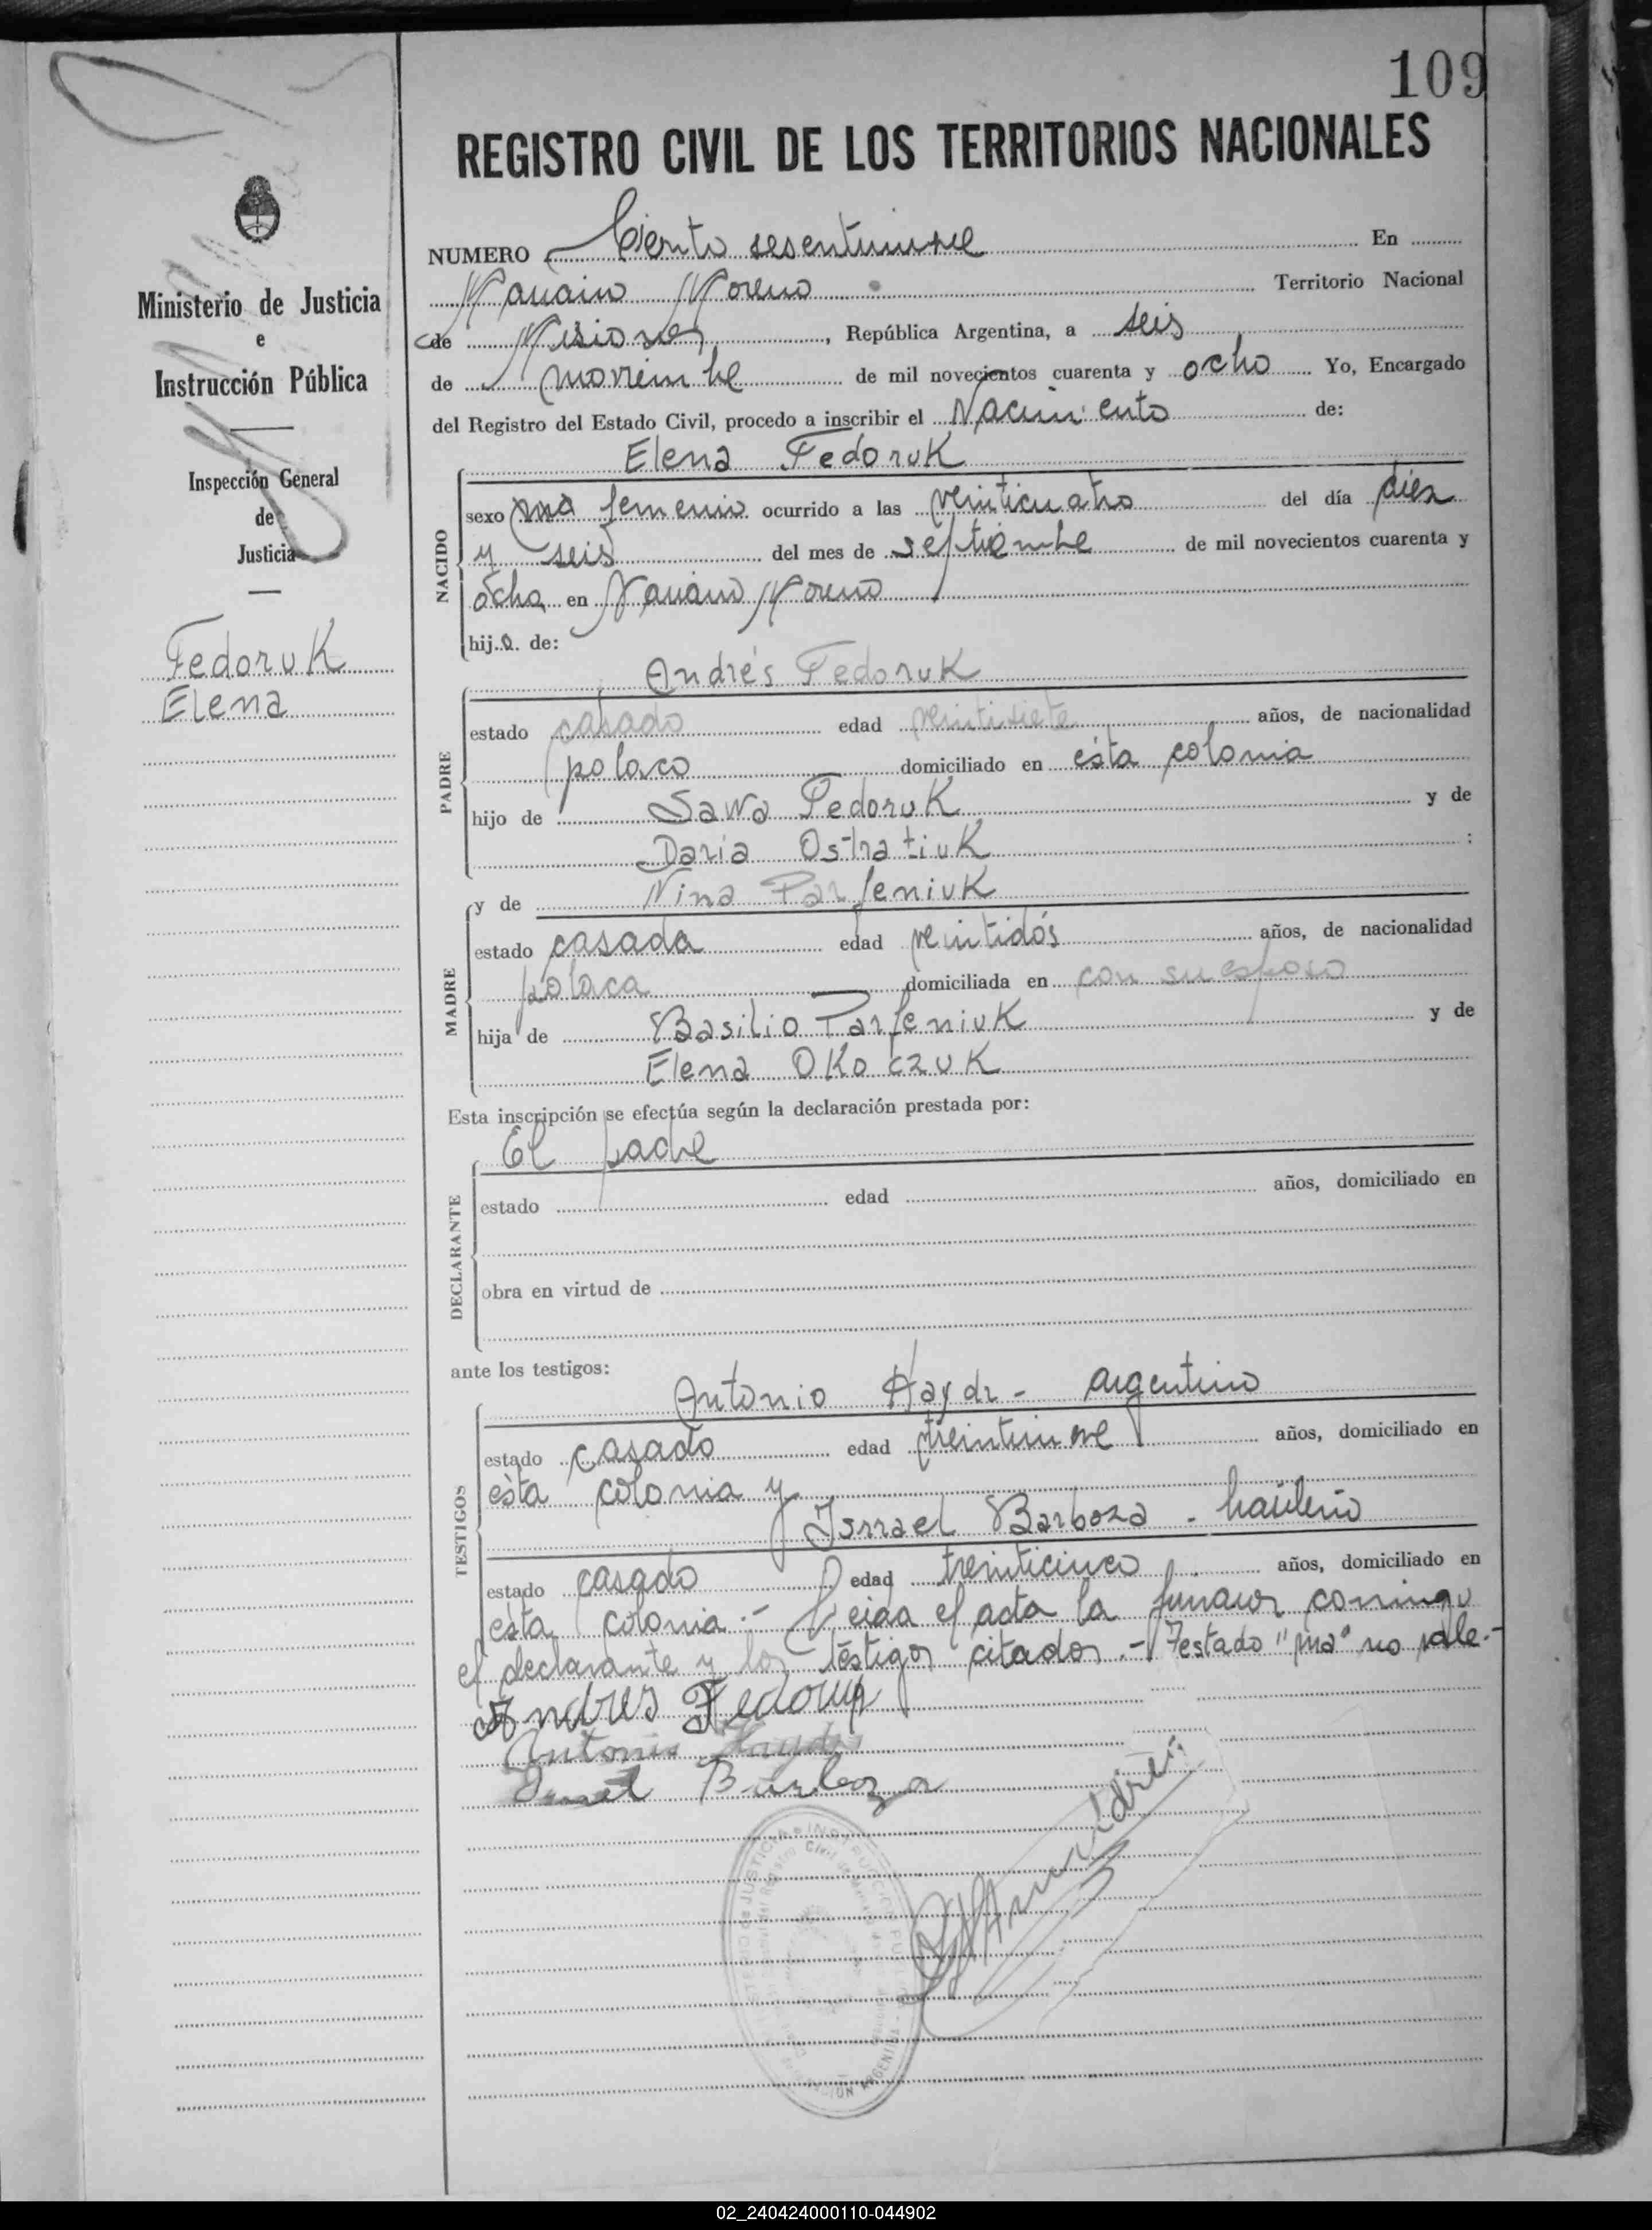 109
REGISTRO CIVIL DE LOS TERRITORIOS NACIONALES
Ministerio de Justicia
e
Instrucción Pública
Inspección General
de
Justicia
Fedoruk
Elena
NUMERO Ciento sesentinueve En
Mariano Moreno Territorio Nacional
de Misiones, República Argentina, a seis
de noviembre de mil novecientos cuarenta y ocho Yo, Encargado
del Registro del Estado Civil, procedo a inscribir el Nacimiento de:
Elena Fedoruk
NACIDO
sexo ma femenino ocurrido a las veinticuatro del día diez
y seis del mes de septiembre de mil novecientos cuarenta y
ocho en Mariano Moreno
hija de:
Andrés Fedoruk
PADRE
estado casado edad veintisiete años, de nacionalidad
polaco domiciliado en ésta colonia
hijo de Sawa Fedoruk y de
Daria Ostratiuk :
y de Nina Parfeniuk
MADRE
estado casada edad veintidós años, de nacionalidad
polaca domiciliada en con su esposo
hija de Basilio Parfeniuk y de
Elena Okoczuk
Esta inscripción se efectúa según la declaración prestada por:
El padre
DECLARANTE
estado edad años, domiciliado en
obra en virtud de
ante los testigos:
Antonio Haydr - argentino
TESTIGOS
estado casado edad treintinueve años, domiciliado en
ésta colonia y
Ismael Barboza - brasileño
estado casado edad treinticinco años, domiciliado en
ésta colonia.- Leida el acta la firmaron conmigo
el declarante y los testigos citados.- Testado "ma" no vale.-
Andres Fedoruk
Antonio Haydr
Ismael Barboza
02_240424000110-044902